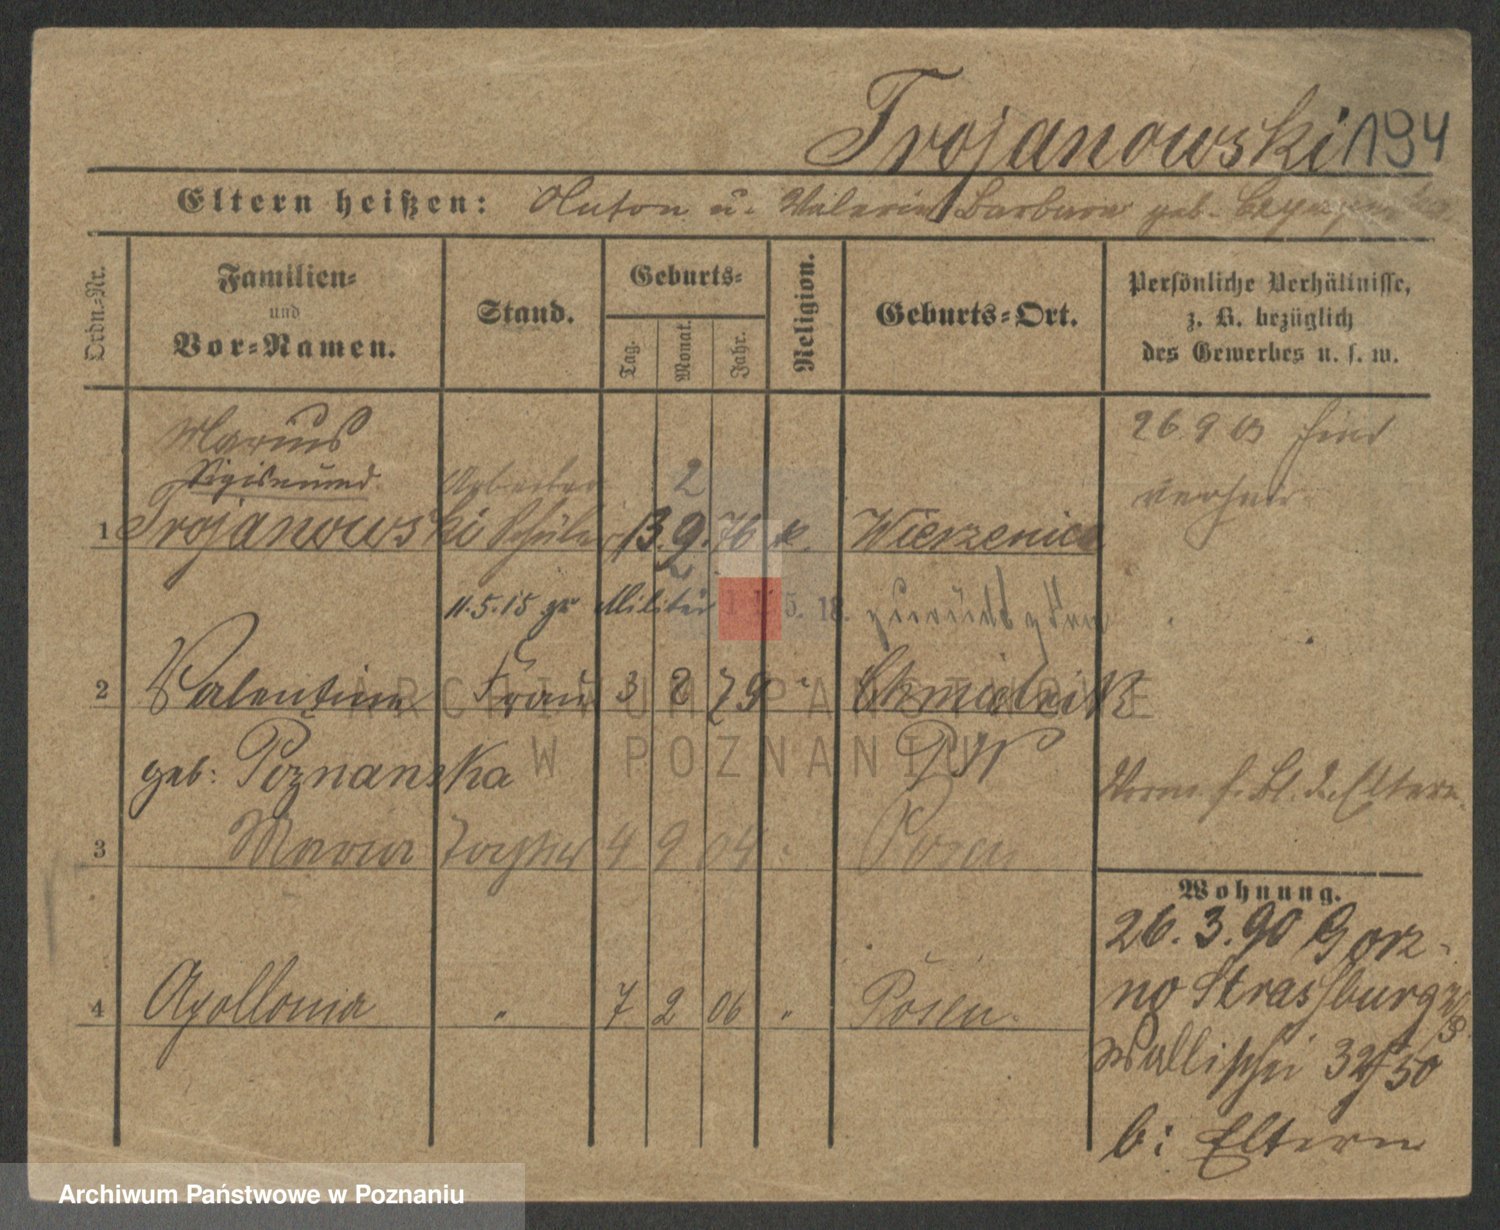 Trojanowski 194
Eltern heißen: Anton u. Valeria Barbara geb.
Ordn.-Nr.
Familien-
und
Vor-Namen.
Stand.
Geburts-
Tag.
Monat.
Jahr.
Religion.
Geburts-Ort.
Persönliche Verhältnisse,
z. B. bezüglich
des Gewerbes u. s. w.
Marius
Sigismund
Arbeiter 2
26 9 03
1 Trojanowski Schüler 13. 9. 76 k. Wierzenica
2
11.5.15 zr Militär 11. 5. 18. zurück
2 Valentine Frau 3 2 79 " 
geb: Poznanska
Verm. f. Bl. d. Eltern
3 Maria Tochter 4 9 04 " Posen
Wohnung.
26. 3. 90 Gorz-
no Strassburg
4 Apollonia " 7 2 06 " Posen.
Wallischei 32/50
b: Eltern
ARCHIWUM PAŃSTWOWE
W POZNANIU
Archiwum Państwowe w Poznaniu